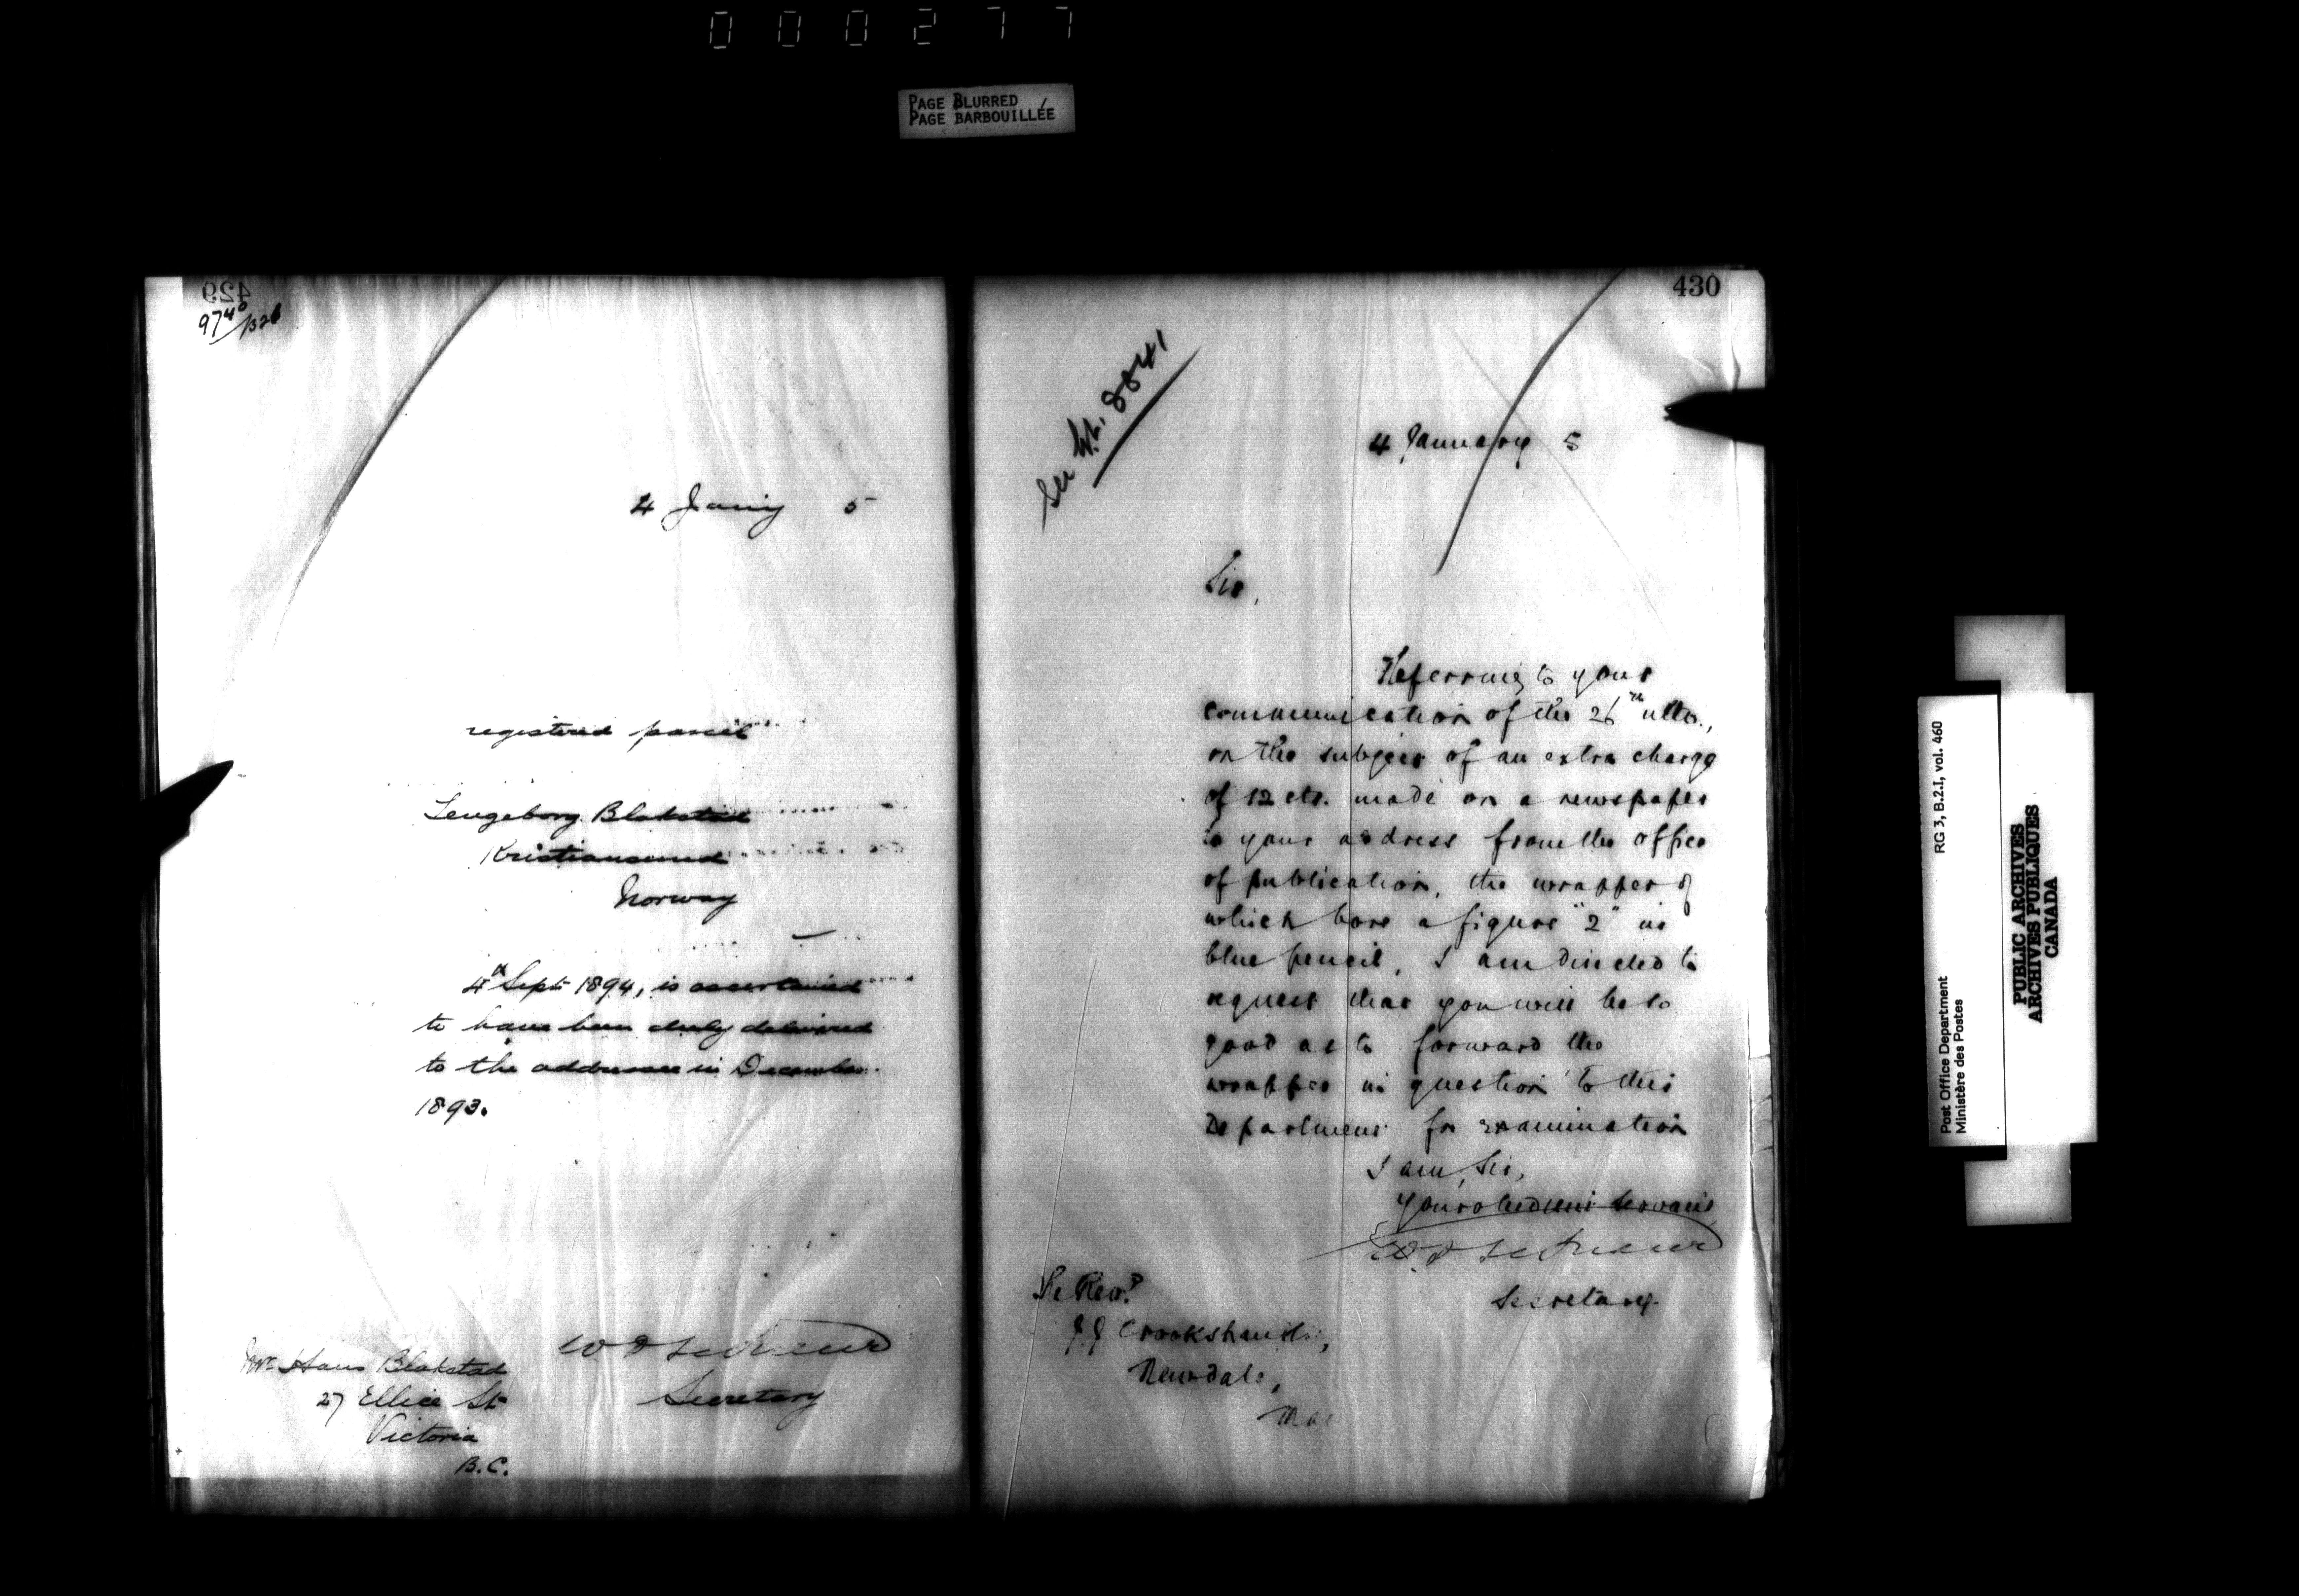 000277
PAGE BLURRED
PAGE BARBOUILLÉE
429
9740/B26
4 Jany 5
registered parcel
Lengeborg Blakstad
Kristiansund
Norway
4th Sept 1894, is ascertained
to have been duly delivered
to the addressee in December
1893.
W D LeSueur
Secretary
Mr Hans Blakstad
27 Ellice St
Victoria
B.C.
430
See 8841
4 January 5
Sir,
Referring to your
communication of the 26th ulto.,
on the subject of an extra charge
of 12 cts. made on a newspaper
to your address from the office
of publication, the wrapper of
which bore a figure "2" in
blue pencil, I am directed to
request that you will be so
good as to forward the
wrapper in question to this
Department for examination
I am, Sir,
Your obedient Servant,
W. D LeSueur
Secretary.
The Revd
J J Crookshanks,
Newdale,
Man
RG 3, B.2.I, vol. 460
Post Office Department
Ministère des Postes
PUBLIC ARCHIVES
ARCHIVES PUBLIQUES
CANADA